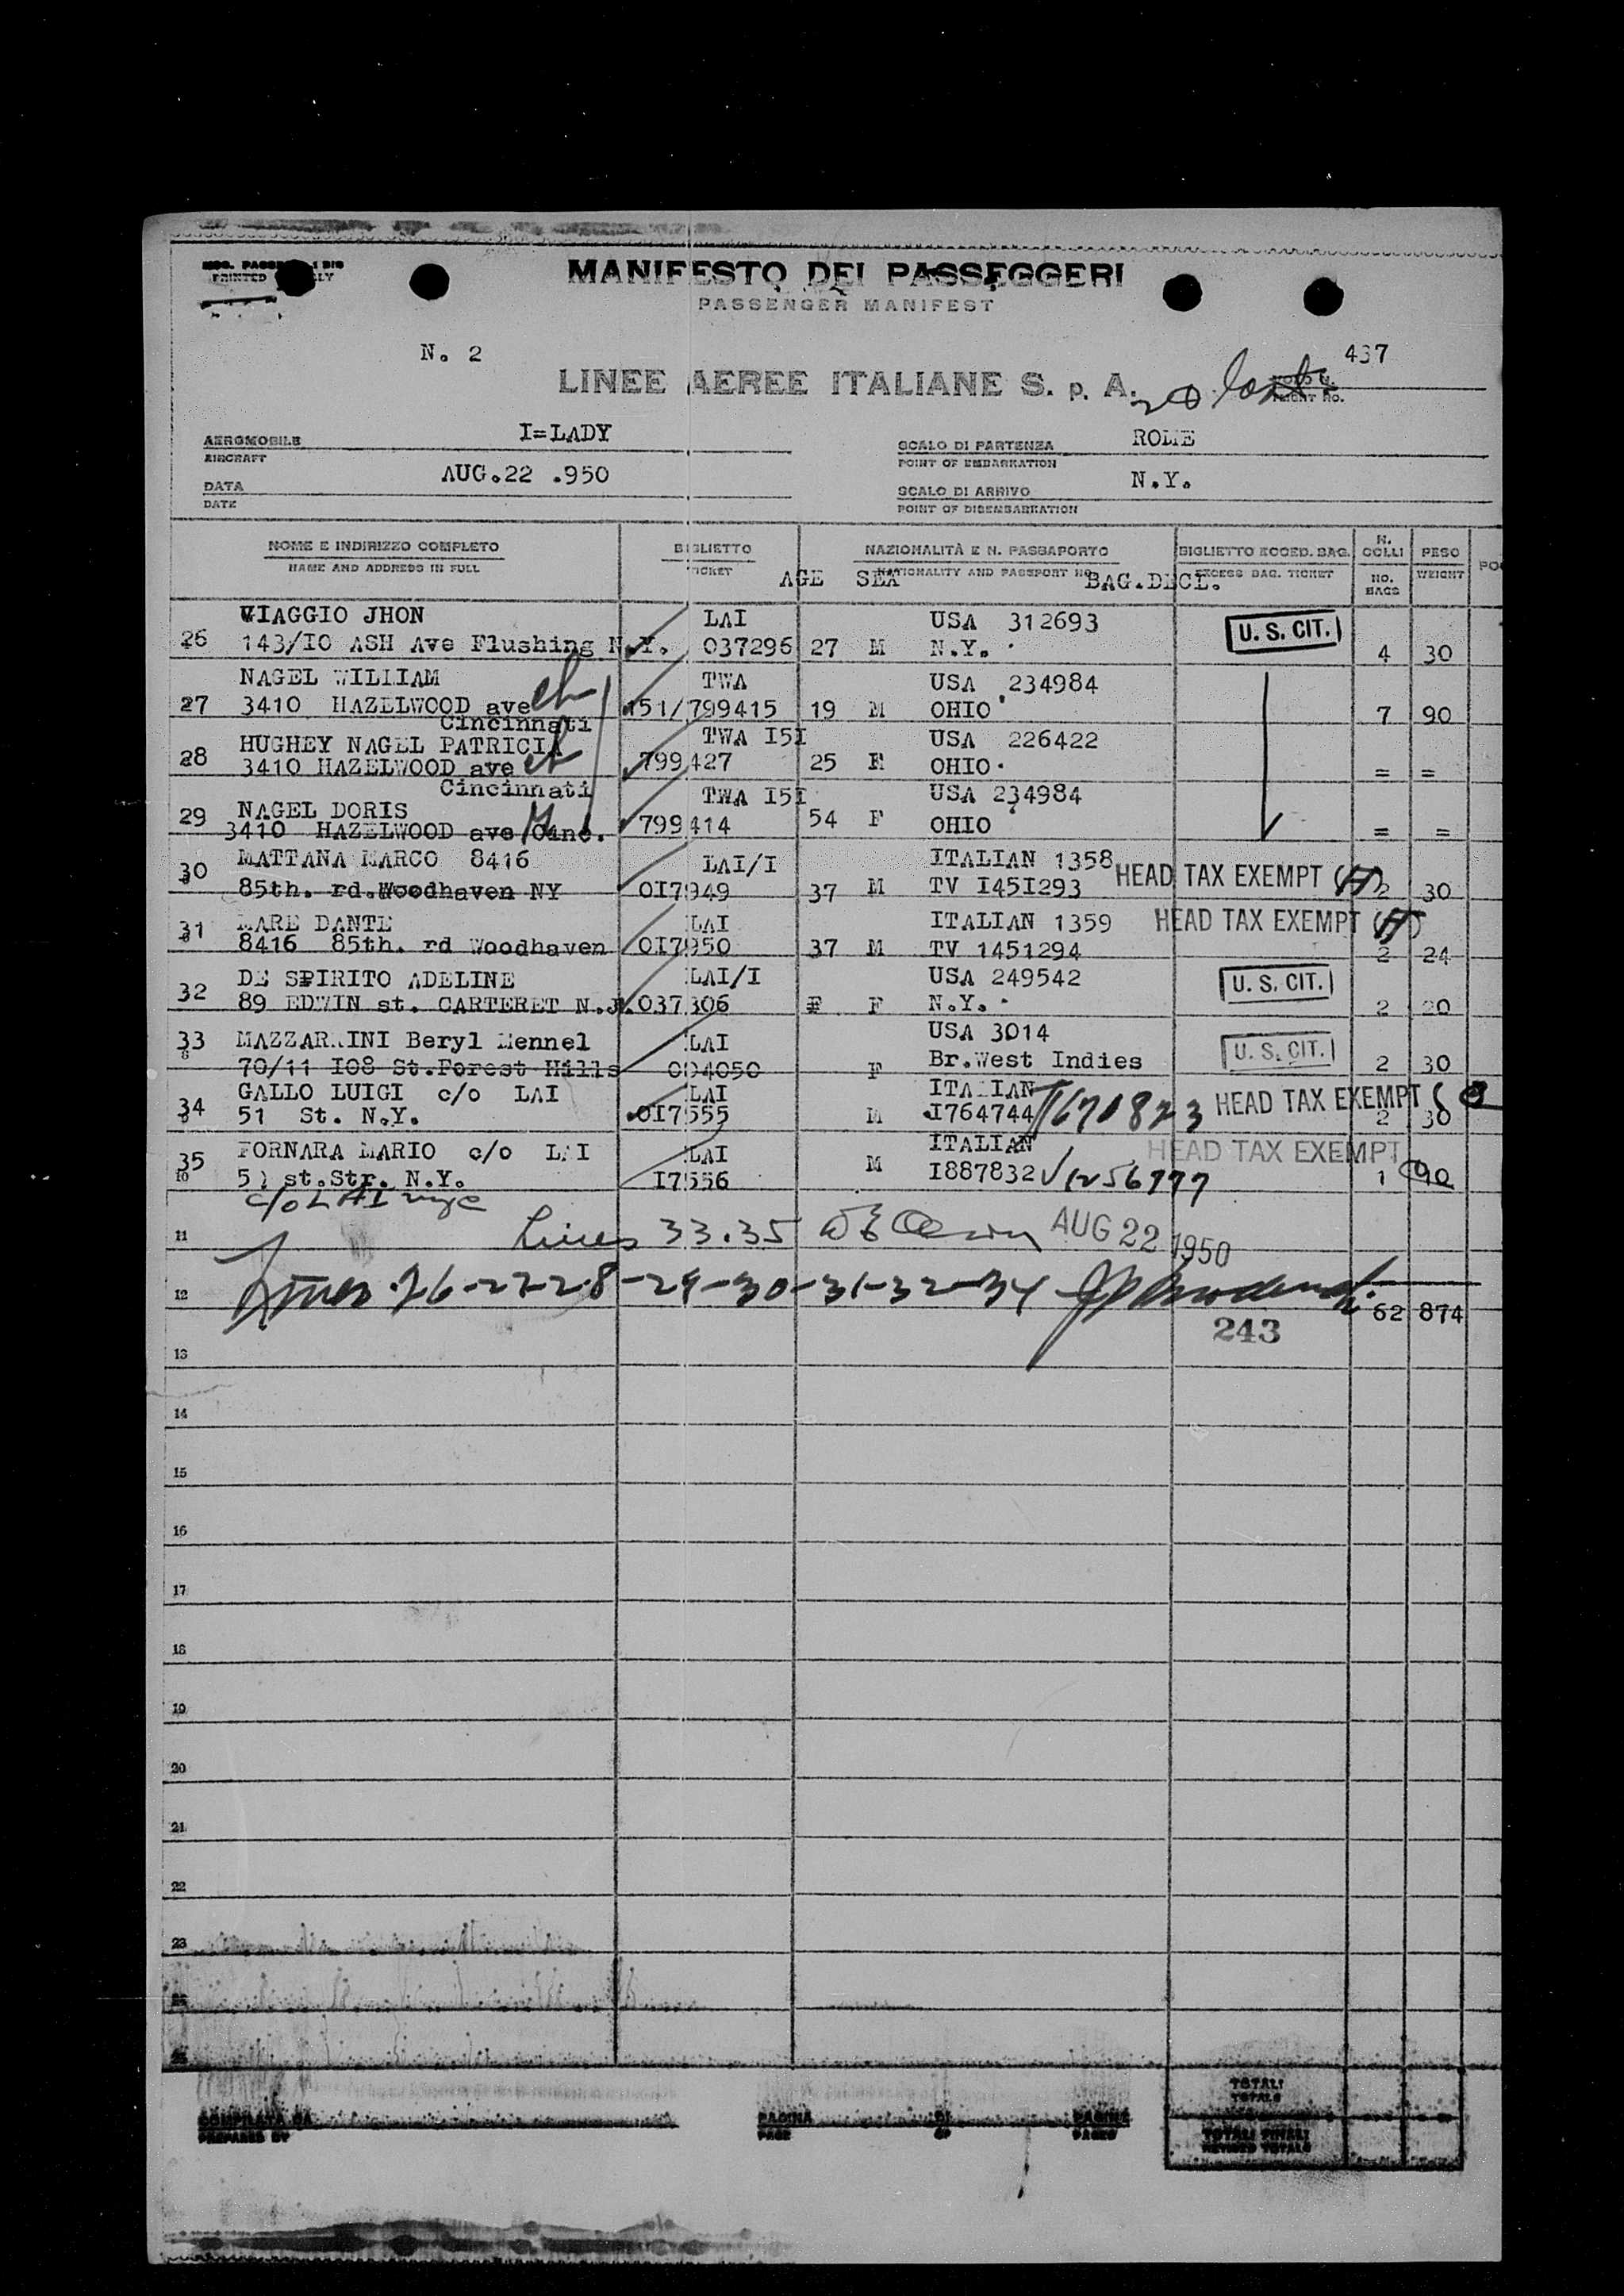 MANIFESTO DEI PASSEGGERI
PASSENGER MANIFEST
N. 2
437
LINEE AEREE ITALIANE S. p. A.
AEROMOBILE I=LADY
AIRCRAFT
SCALO DI PARTENZA ROME
POINT OF EMBARKATION
DATA AUG.22 .950
DATE
SCALO DI ARRIVO N.Y.
POINT OF DISEMBARKATION
NOME E INDIRIZZO COMPLETO BIGLIETTO NAZIONALITÀ E N. PASSAPORTO BIGLIETTO ECCED. BAG. N. COLLI PESO
NAME AND ADDRESS IN FULL TICKET AGE SEX NATIONALITY AND PASSPORT NO. BAG.DECL. EXCESS BAG. TICKET NO. BAGS WEIGHT
VIAGGIO JHON LAI USA 312693 U. S. CIT.
26 143/IO ASH Ave Flushing N.Y. 037296 27 M N.Y. 4 30
NAGEL WILLIAM TWA USA 234984
27 3410 HAZELWOOD ave 151/799415 19 M OHIO 7 90
Cincinnati
HUGHEY NAGEL PATRICIA TWA I5I USA 226422
28 3410 HAZELWOOD ave 799427 25 F OHIO = =
Cincinnati
NAGEL DORIS TWA I5I USA 234984
29 3410 HAZELWOOD ave Cinc. 799414 54 F OHIO = =
MATTANA MARCO 8416 LAI/I ITALIAN 1358 HEAD TAX EXEMPT
30 85th. rd.Woodhaven NY 0I7949 37 M TV I45I293 2 30
MARE DANTE LAI ITALIAN 1359 HEAD TAX EXEMPT
31 8416 85th. rd Woodhaven 0I7950 37 M TV 1451294 2 24
DE SPIRITO ADELINE LAI/I USA 249542 U. S. CIT.
32 89 EDWIN st. CARTERET N.J. 037306 F F N.Y. 2 20
MAZZARRINI Beryl Mennel LAI USA 3014 U. S. CIT.
33 70/11 I08 St.Forest Hills 004050 F Br.West Indies 2 30
GALLO LUIGI c/o LAI LAI ITALIAN HEAD TAX EXEMPT
34 51 St. N.Y. 0I7555 M I764744 1670823 2 30
FORNARA MARIO c/o LAI LAI ITALIAN HEAD TAX EXEMPT
35 5) st.Str. N.Y. I7556 M I887832 V1256777 1
c/o LAI nyc
11 Lines 33.35 AUG 22 1950
12 Lines 26-27-28-29-30-31-32-34
62 874
243
13
14
15
16
17
18
19
20
21
22
23
TOTALI
TOTALS
COMPILATA DA
PREPARED BY
PAGINA DI PAGINE
PAGE OF PAGES
TOTALI FINALI
REVISED TOTALS